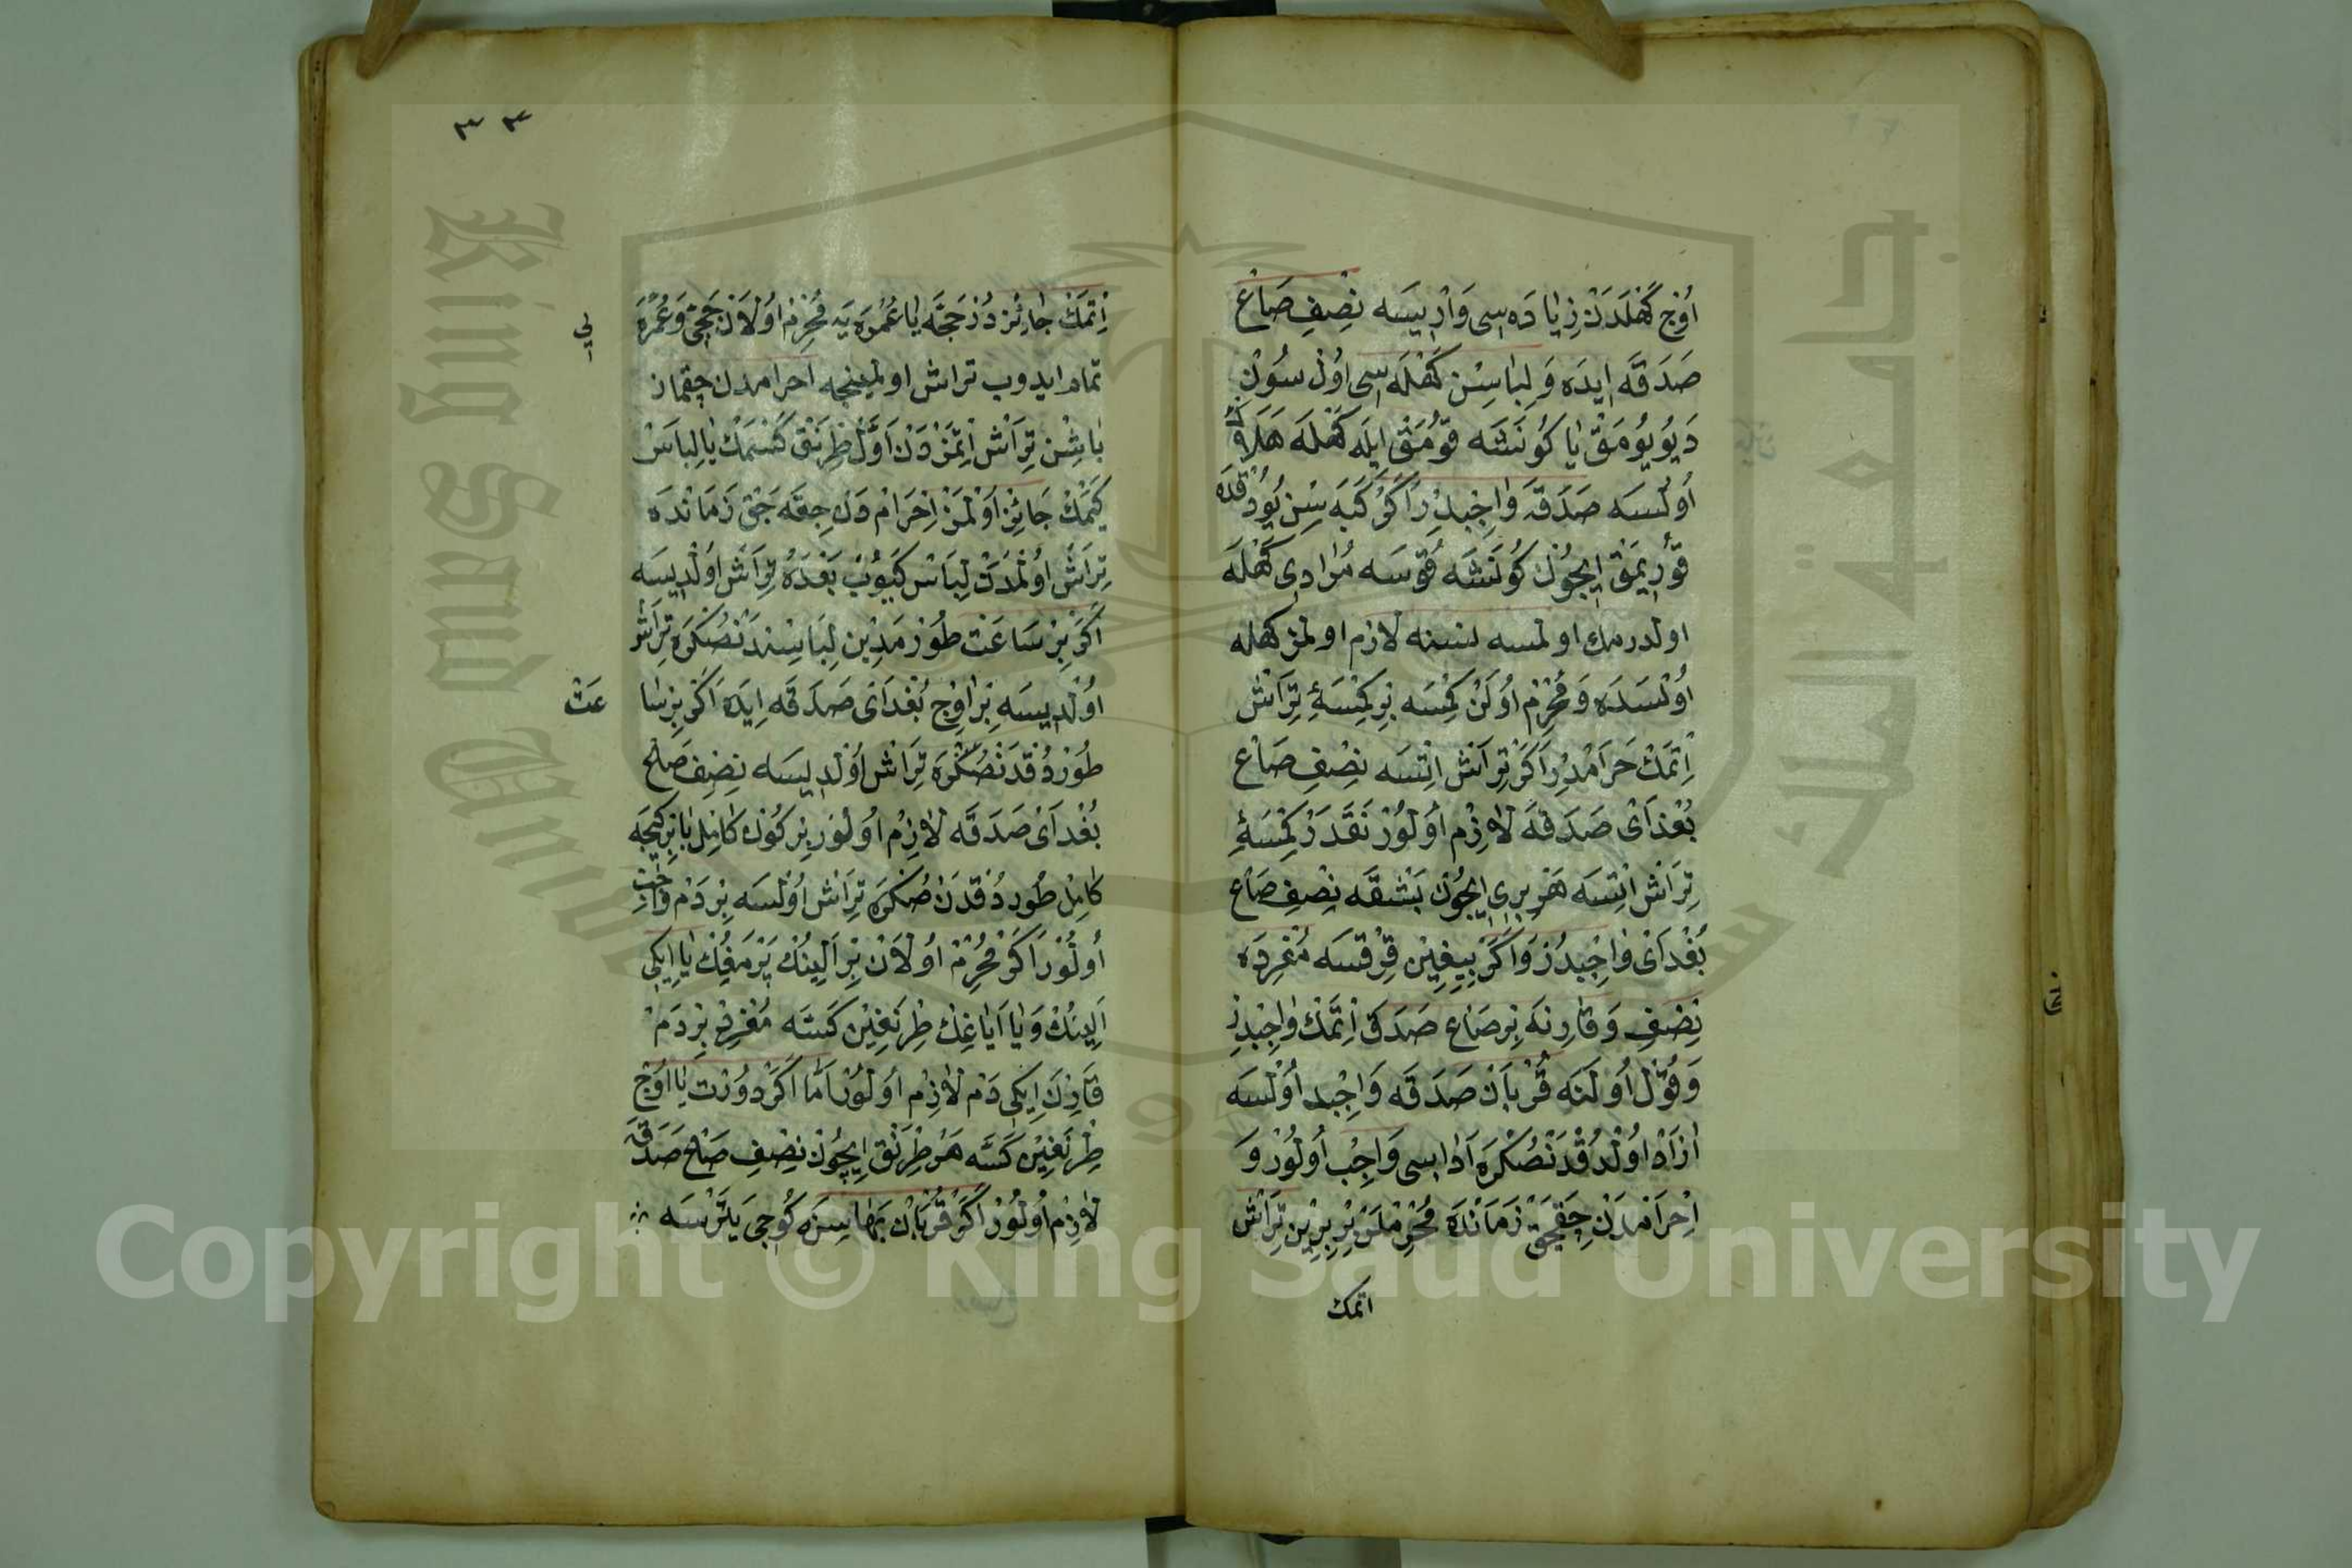 اُوْج كَهْلَدَنْ زِيَادَه سِى وَارْ اِيسَه نِصْفِ صَاعْ
صَدَقَه اِيدَه وَ لِبَاسِنْ كَهْلَه سِى اُولْسُونْ
دَيُو يُومَقْ يَا كُونَشَه قُومَقْ اِيلَه كَهْلَه هَلَاكْ
اُولْسَه صَدَقَه وَاجِبْدِرْ اَكَرْ يُودُقْدَه
قُورِيمَقْ اِيچُونْ كُونَشَه قُوسَه مُرَادِى كَهْلَه
اولدرمك اولمسه نسنه لازم اولمز كهله
اُولْسَدَه وَ مُحْرِمْ اُولَنْ كِمْسَه بِرْ كِمْسَهِٔ تِرَاشْ
اِتْمَكْ حَرَامْدُرْ اَكَرْ تِرَاشْ اِتْسَه نِصْفِ صَاعْ
بُغْدَاىْ صَدَقَه لَازِمْ اُولُورْ نَقَدَرْ كِمْسَهِٔ
تِرَاشْ اِتْسَه هَرْ بِرِى اِيچُونْ بَشْقَه نِصْفِ صَاعْ
بُغْدَاىْ وَاجِبْدُرْ وَ اَكَرْ بِيِيغِينْ قِرْقْسَه مُفْرِدَه
نِصْفِ وَ قَارِنَه بِرْ صَاعْ صَدَقَه اِتْمَكْ وَاجِبْدِرْ
وَ قُولْ اُولَنَه قُرْبَانْ صَدَقَه وَاجِبْ اُولْسَه
اٰزَادْ اُولْدُقْدَنْصُكْرَه اَدَاسِى وَاجِبْ اُولُورْ وَ
اِحْرَامْدَنْ چِقَجَقْ زَمَانْدَه مُحْرِمْلَرْ بِرْ بِرِينْ تِرَاشْ
اتمك
٣٣
اِتْمَكْ جَائِزْدُرْ حَجَّه يَا عُمْرَه يَه مُحْرِمْ اُولَانْ حَجِّى وَ عُمْرَه
يى
تمام ايدوب تراش اولمينجه احرامدن چقماز
بَاشِنْ تِرَاشْ اِتْمَزْدَنْ اَوَّلْ طِرْنَقْ كَسْمَكْ يَا لِبَاسْ
كَيْمَكْ جَائِزْ اُولْمَزْ اِحْرَامْدَنْ چِقَه جَقْ زَمَانْدَه
تِرَاشْ اُولْمَدَنْ لِبَاسْ كَيُوبْ بَعْدَهُ تِرَاشْ اُولْدِيسَه
اَكَرْ بِرْ سَاعَتْ طُورْمَدِينْ لِبَاسِنْدَنْصُكْرَه تِرَاشْ
اُولْدِيسَه بِرْ اَوُجْ بُغْدَاىْ صَدَقَه اِيدَه اَكَرْ بِرْ سَا
عَتْ
طُورْدُقْدَنْصُكْرَه تِرَاشْ اُولْدِيسَه نِصْفِ صَاعْ
بُغْدَاىْ صَدَقَه لَازِمْ اُولُورْ بِرْ كُونْ كَامِلْ يَا بِرْ كِيجَه
كَامِلْ طُورْدُقْدَنْ صُكْرَه تِرَاشْ اُولْسَه بِرْ دَمْ وَاجِبْ
اُولُورْ اَكَرْ مُحْرِمْ اُولَانْ بِرْ اَلِينُكْ پَرْمَغِنْ يَا اِيكِى
اَلِينُكْ وَ يَا اَيَاغِنُكْ طِرْنَغِينْ كَسَه مُفْرِدْ بِرْ دَمْ
قَارِنْ اِيكِى دَمْ لَازِمْ اُولُورْ اَمَّا اَكَرْ دُورْتْ يَا اُوْجْ
طِرْنَغِينْ كَسَه هَرْ طِرْنَقْ اِيچُونْ نِصْفِ صَاعْ صَدَقَه
لَازِمْ اُولُورْ اَكَرْ قُرْبَانْ بَهَاسِنَه كُوجِى يَتْرْسَه